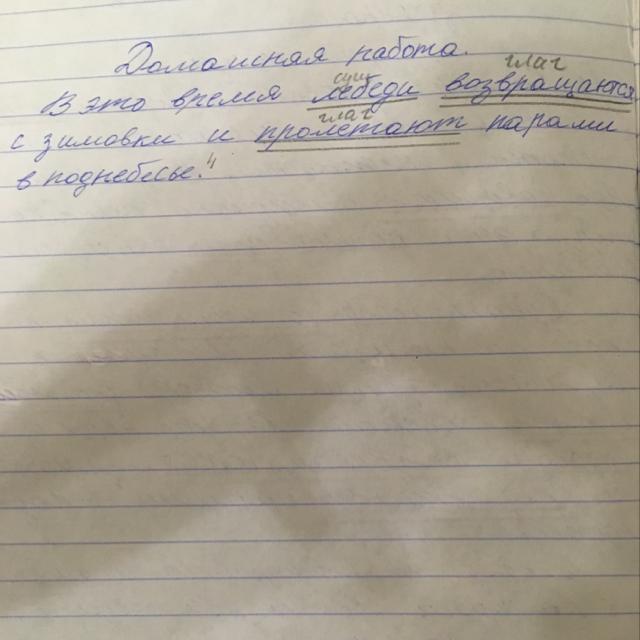 Домашная работа.
сущ глаг
В это время лебеди возвращаются
глаг
с зимовки и пролетают парами
в поднебесье.⁴